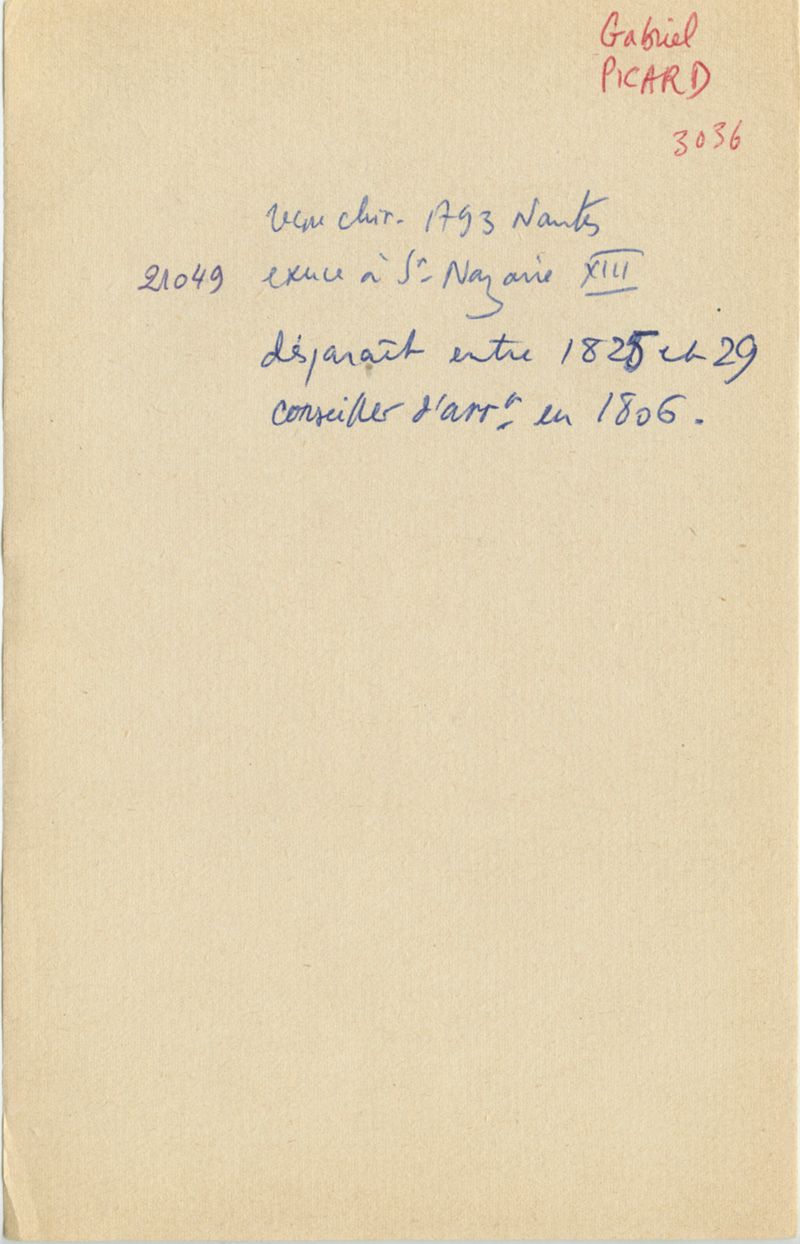 Gabriel
PICARD
3036
chir. 1793 Nantes
21049 exerce à St Nazaire XIII
disparaît entre 1825 et 29
conseiller d'arrt en 1806.